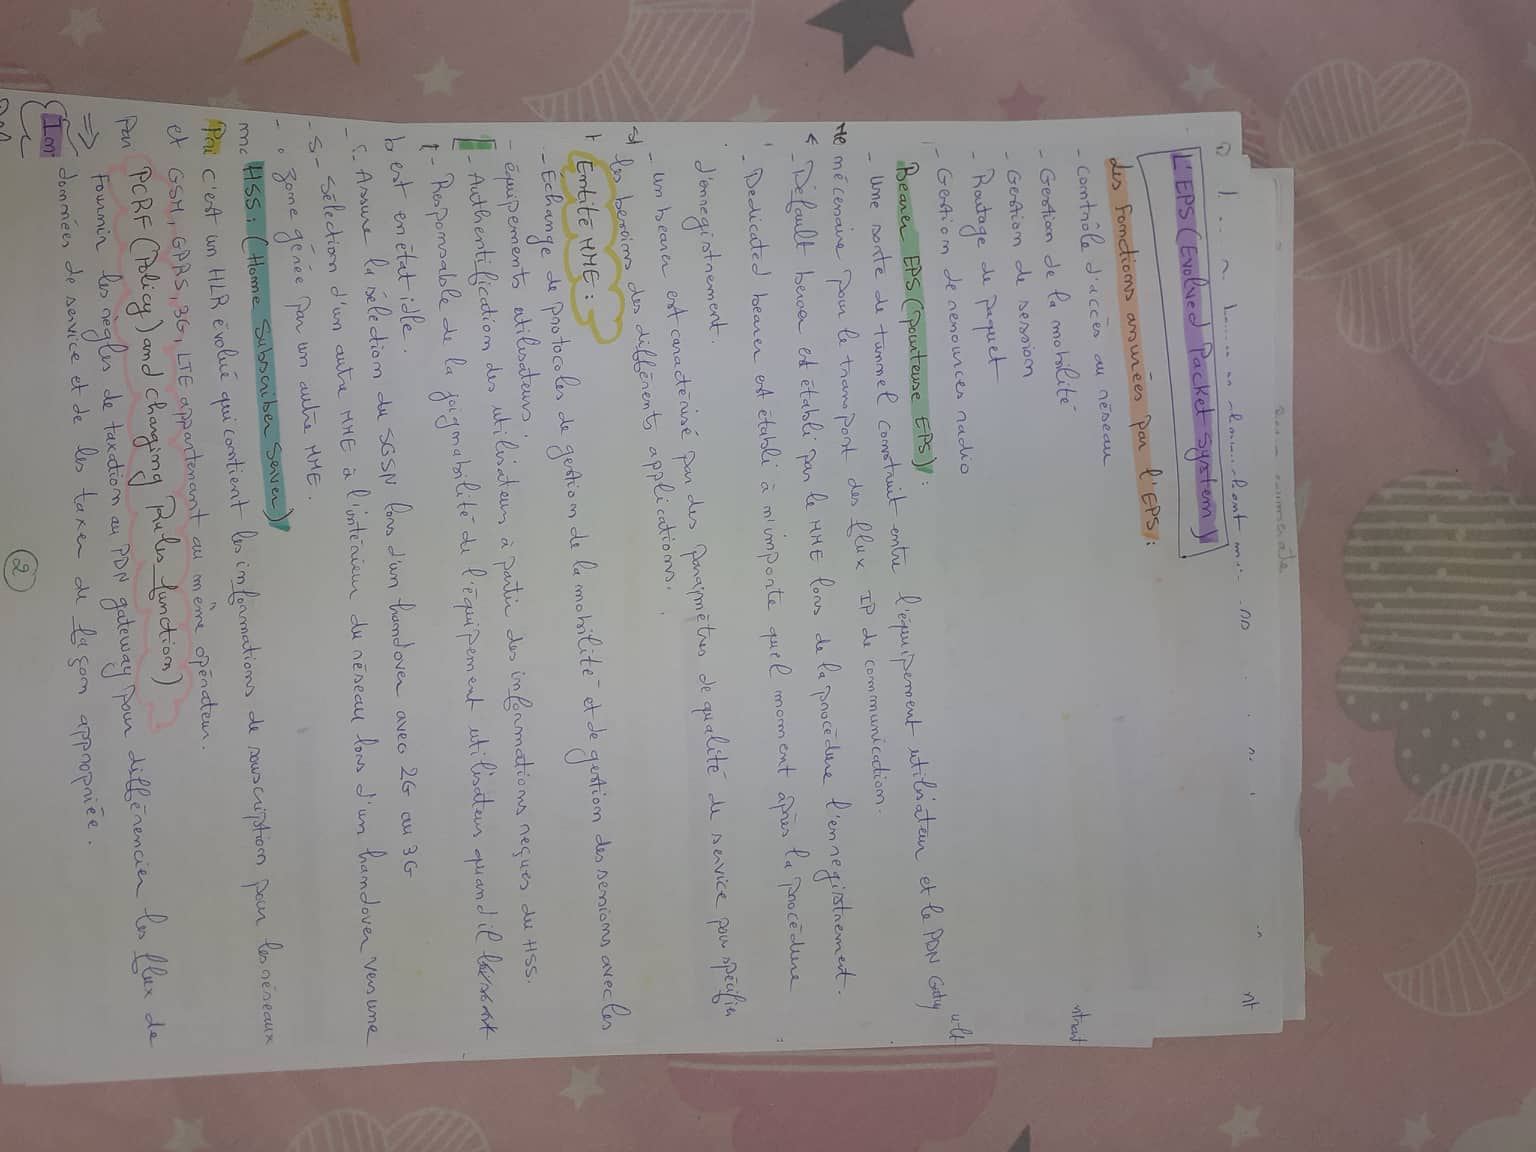 L'EPS (Evolved Packet System)
des fonctions assurées par l'EPS:
- Contrôle d'accès au réseau
- Gestion de la mobilité
- Gestion de session
- Routage de paquet
- Gestion de ressources radio
Bearer EPS (pourteuse EPS):
- une sorte de tunnel construit entre l'équipement utilisateur et le PDN
nécessaire pour le transport des flux IP de communication.
- Default bearer est établi par le MME lors de la procédure l'enregistrement.
- Dedicated bearer est établi à n'importe quel moment après la procédure
d'enregistrement.
- un bearer est caractérisé par des paramètres de qualité de service pour spécifier
les besoins des différents applications.
Entité MME:
- Echange de protocoles de gestion de la mobilité et de gestion des sessions avec les
équipements utilisateurs.
- Authentification des utilisateurs à partir des informations reçues du HSS.
- Responsable de la joignabilité de l'équipement utilisateur quand il
est en état idle.
- Assure la sélection du SGSN lors d'un handover avec 2G au 3G
- Sélection d'un autre MME à l'intérieur du réseau lors d'un handover vers une
zone gérée par un autre MME.
HSS: (Home Subscriber Server)
C'est un HLR évolué qui contient les informations de souscription pour les réseaux
GSM, GPRS, 3G, LTE appartenant au même opérateur.
PCRF (Policy) and charging Rules function)
Fournir les règles de taxation au PDN gateway pour différencier les flux de
données de service et de les taxer de façon appropriée.
2